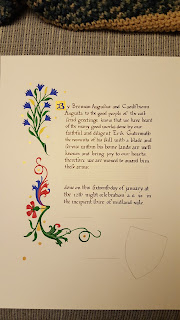 By Brennan Augustus and Caoilfhionn
Augusta, to the good people of the east
send greetings, know that we have heard
of the many good works done by our
faithful and diligent Lord
the accounts of his skill with a blade and
service within his home lands are well
known and bring joy to our hearts
therefore we are moved to award him
these arms:
done on this fifteenth day of january at
the 12th night celebration a.s. in
the incipient shire of